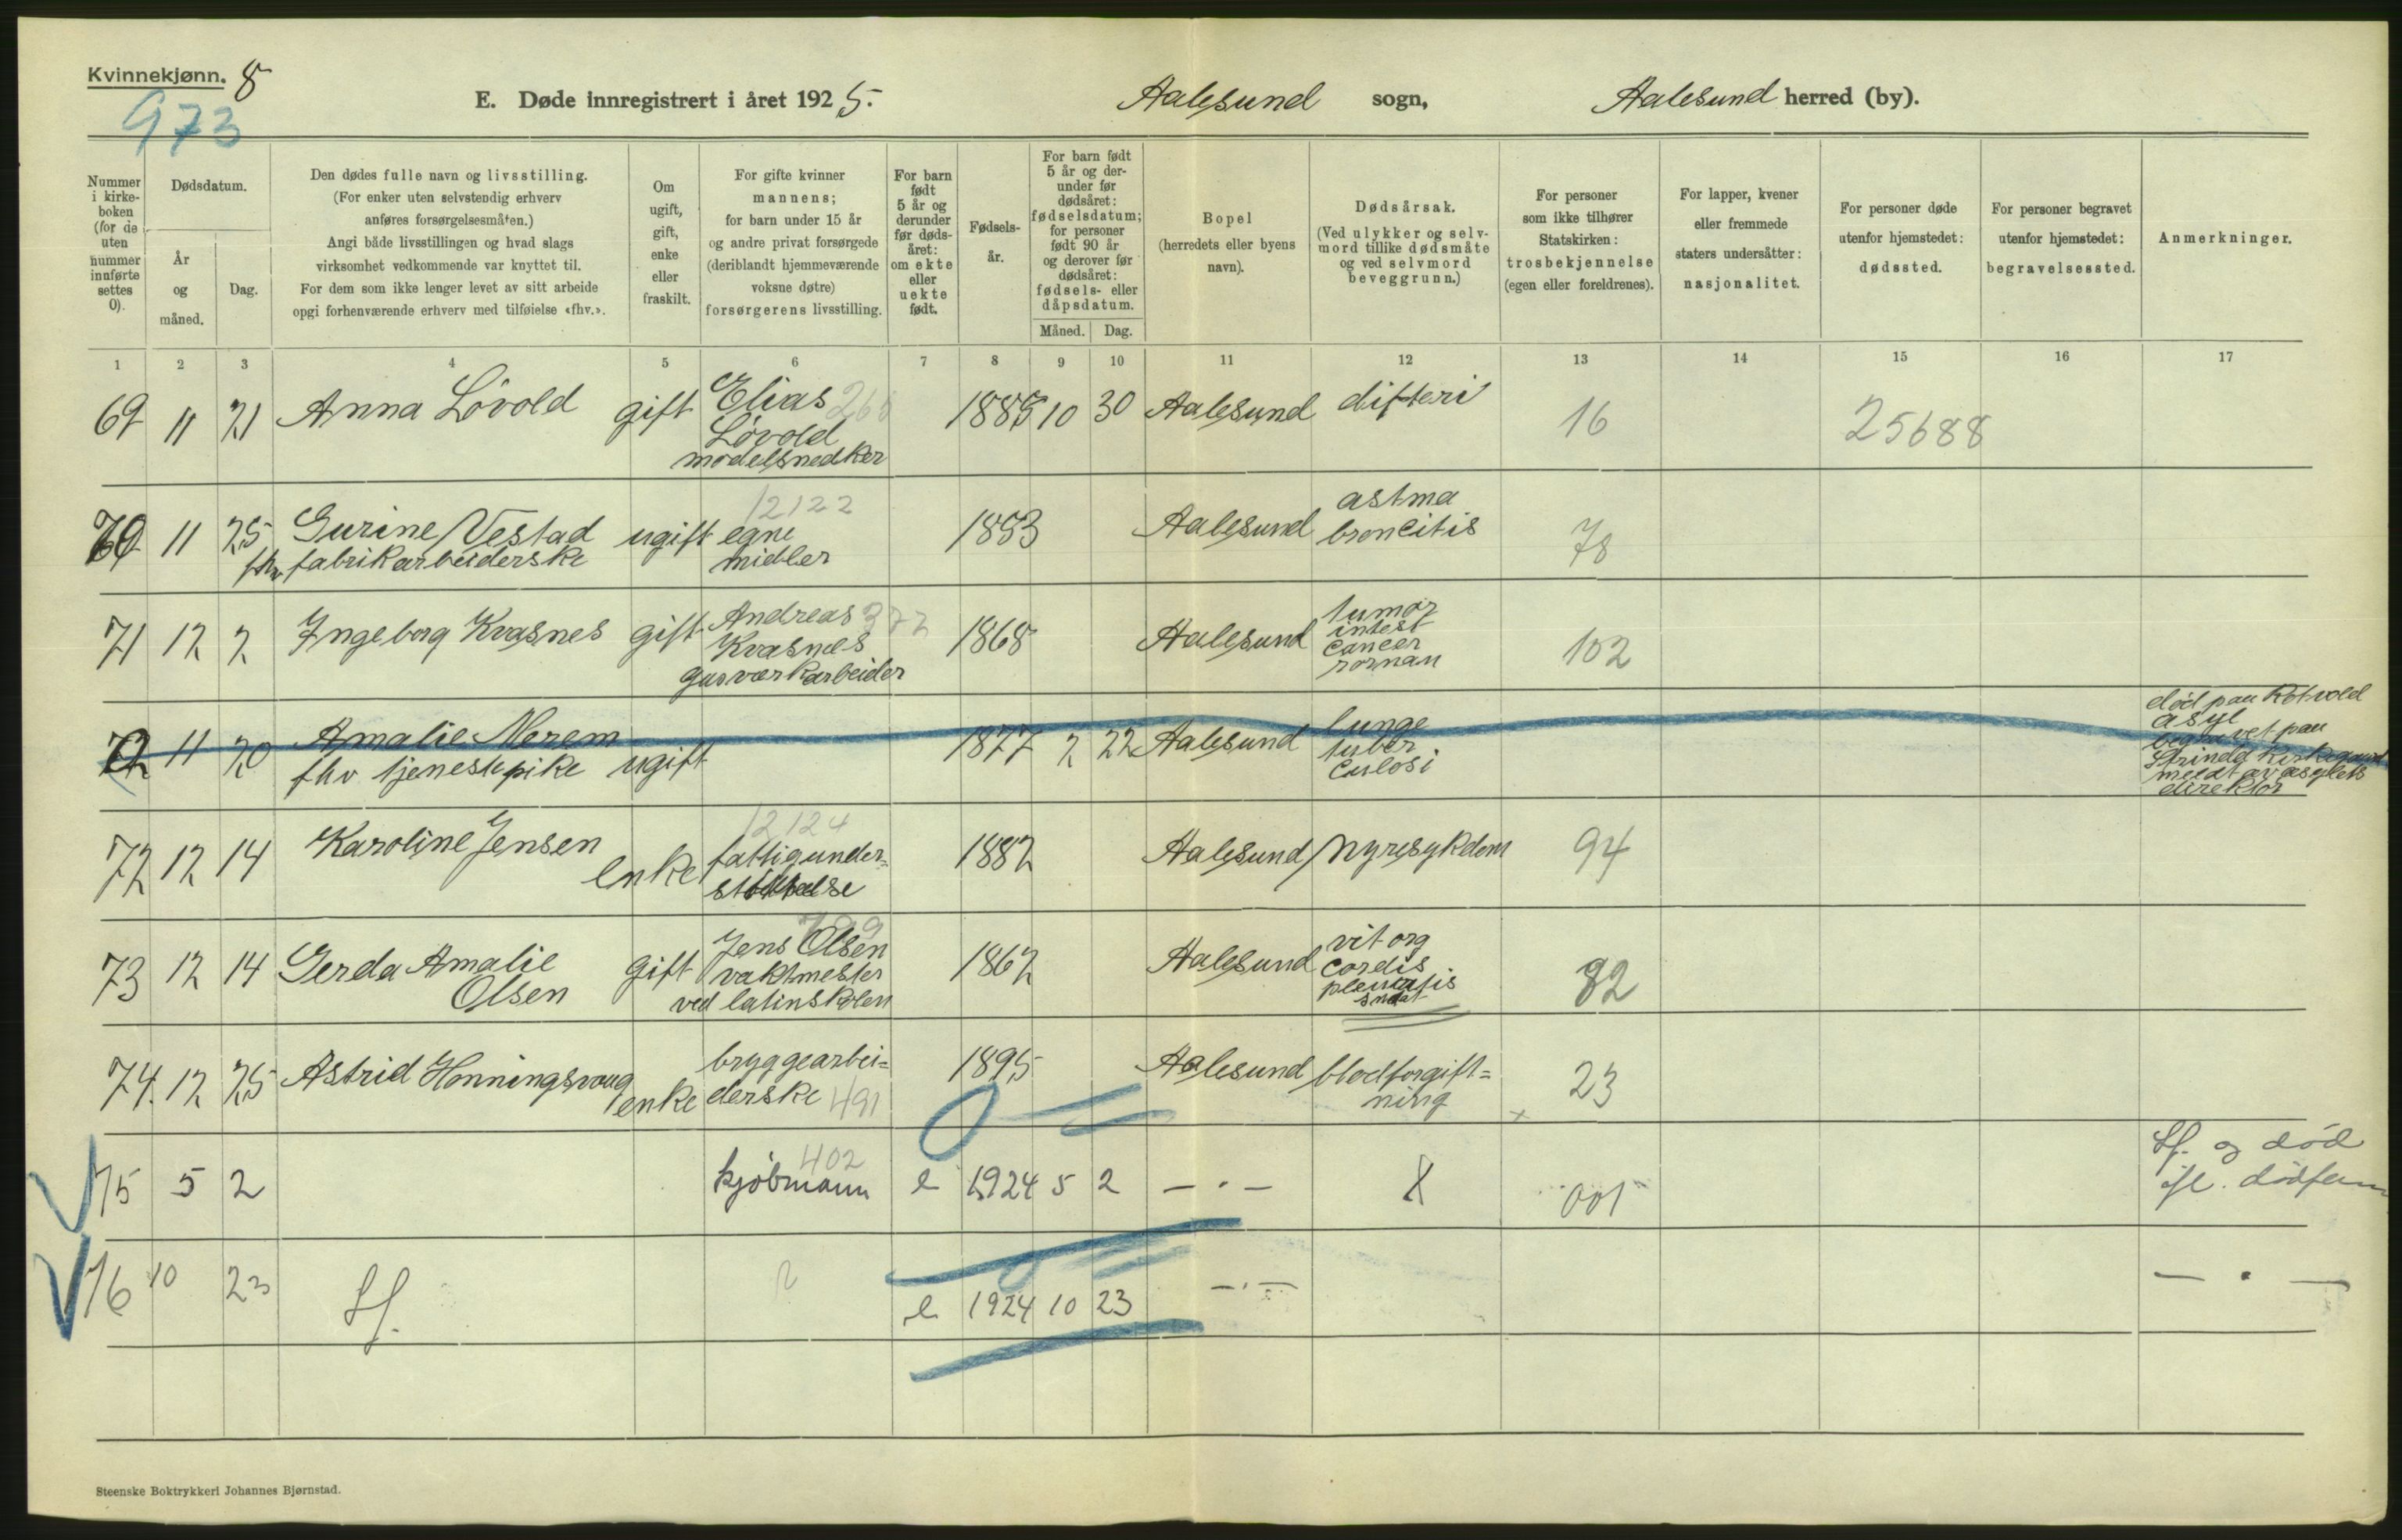 Kvinnekjønn. 8
973
E. Døde innregistrert i året 1925. Aalesund sogn, Aalesund herred (by).
Nummer i kirke-boken (for de uten nummer innførte settes 0).
Dødsdatum.
År og måned.
Dag.
Den dødes fulle navn og livsstilling.
(For enker uten selvstendig erhverv
anføres forsørgelsesmåten.)
Angi både livsstillingen og hvad slags
virksomhet vedkommende var knyttet til.
For dem som ikke lenger levet av sitt arbeide
opgi forhenværende erhverv med tilføielse «fhv.».
Om ugift, gift, enke eller fraskilt.
For gifte kvinner
mannens;
for barn under 15 år
og andre privat forsørgede
(deriblandt hjemmeværende
voksne døtre)
forsørgerens livsstilling.
For barn født 5 år og derunder før døds-året: om ekte eller uekte født.
Fødsels-år.
For barn født 5 år og der-under før dødsåret: fødselsdatum; for personer født 90 år og derover før dødsåret: fødsels- eller dåpsdatum.
Måned. Dag.
Bopel
(herredets eller byens
navn).
Dødsårsak.
(Ved ulykker og selv-
mord tillike dødsmåte
og ved selvmord
beveggrunn.)
For personer
som ikke tilhører
Statskirken:
trosbekjennelse
(egen eller foreldrenes).
For lapper, kvener
eller fremmede
staters undersåtter:
nasjonalitet.
For personer døde
utenfor hjemstedet:
dødssted.
For personer begravet
utenfor hjemstedet:
begravelsessted.
Anmerkninger.
1 2 3 4 5 6 7 8 9 10 11 12 13 14 15 16 17
69 11 21 Anna Lövold gift Elias Lövold modelsnedker 1885 10 30 Aalesund difteri 16 25688
70 11 25 Gurine Vestad fhv fabrikarbeiderske ugift 12122 egne midler 1883 Aalesund astma broncitis 78
71 12 2 Ingeborg Kvasnes gift Andreas 372 Kvasnes gasværkarbeider 1868 Aalesund tumor intest cancer 102
0 11 20 Amalie Merem fhv tjenestepike ugift 1877 2 22 Aalesund lunge tuberculosi død paa Rotvold asyl begravet paa Strinda kirkegaard medt av asylets direktör
72 12 14 Karoline Jensen enke 12124 fattigunder=støttelse 1882 Aalesund Nyresykdom 94
73 12 14 Gerda Amalie Olsen gift 799 Jens Olsen vaktmester ved latinskolen 1862 Aalesund vit org cordis 82
74. 12 25 Astrid Honningsvaag enke bryggearbei=derske 491 1895 Aalesund blodforgift=ning 23
75 5 2 402 kjöbmann e 1924 5 2 — · — X 001 Lf. og död
76 10 23 Lf. e 1924 10 23 — · — — · —
Steenske Boktrykkeri Johannes Bjørnstad.